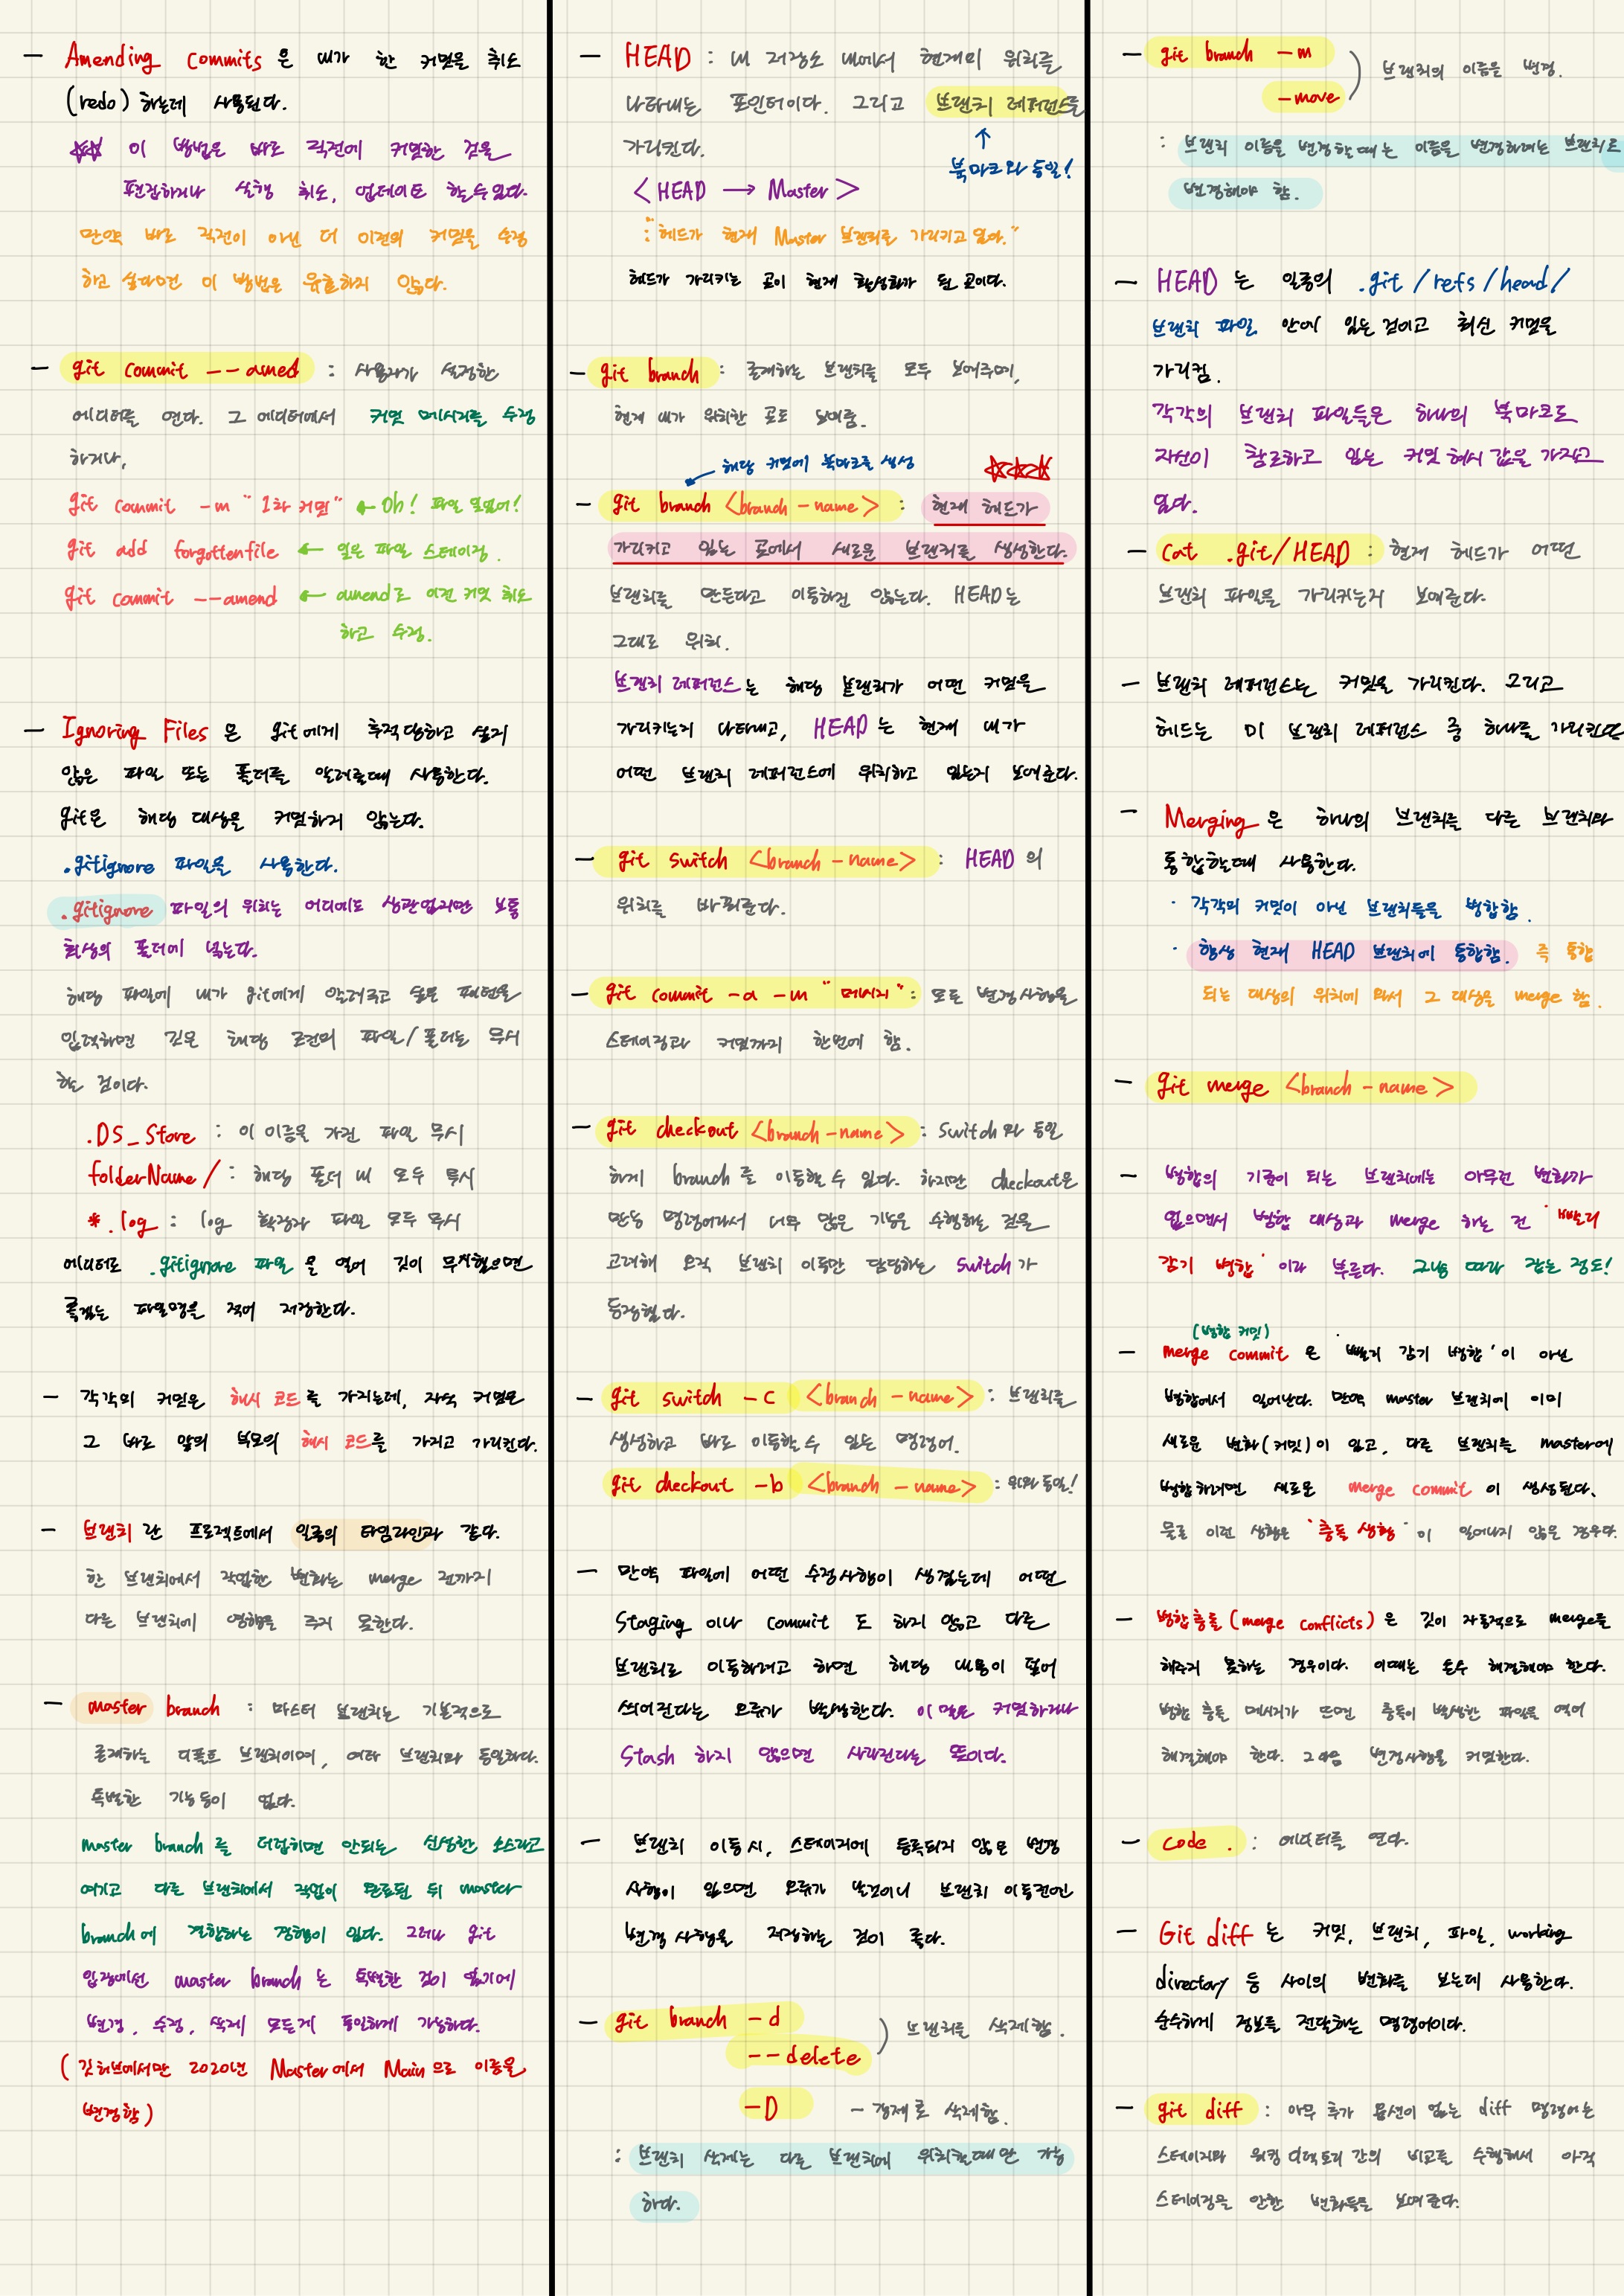 — Amending commits 은 내가 한 커밋을 취소
(redo) 하는데 사용된다.
☆☆ 이 방법은 바로 직전에 커밋한 것을
편집하거나 실행 취소, 업데이트 할수있다.
만약 바로 직전이 아닌 더 이전의 커밋을 수정
하고 싶다면 이 방법은 유효하지 않다.
— git commit --amed : 사용자가 설정한
에디터를 연다. 그 에디터에서 커밋 메시지를 수정
하거나,
git commit -m "1차 커밋" ← Oh! 파일 잊었어!
git add forgottenfile ← 잊은 파일 스테이징.
git commit --amend ← amend로 이전 커밋 취소
하고 수정.
— Ignoring Files 은 git에게 추적당하고 싶지
않은 파일 또는 폴더를 알려줄때 사용한다.
git은 해당 대상을 커밋하지 않는다.
.gitignore 파일을 사용한다.
.gitignore 파일의 위치는 어디에도 상관없지만 보통
최상위 폴더에 넣는다.
해당 파일에 내가 git에게 알려주고 싶은 패턴을
입력하면 깃은 해당 조건의 파일/폴더는 무시
하는 것이다.
.DS_Store : 이 이름을 가진 파일 무시
folderName/ : 해당 폴더 내 모두 무시
*.log : log 확장자 파일 모두 무시
에디터로 .gitignore 파일 을 열어 깃이 무시했으면
좋겠는 파일명을 적어 저장한다.
— 각각의 커밋은 해시 코드를 가지는데, 자식 커밋은
그 바로 앞의 부모의 해시 코드를 가지고 가리킨다.
— 브랜치 란 프로젝트에서 일종의 타임라인과 같다.
한 브랜치에서 작업한 변화는 merge 전까지
다른 브랜치에 영향을 주지 못한다.
— master branch : 마스터 브랜치는 기본적으로
존재하는 디폴트 브랜치이며, 여타 브랜치와 동일하다.
특별한 기능 등이 없다.
master branch를 더럽히면 안되는 신성한 소스라고
여기고 다른 브랜치에서 작업이 완료된 뒤 master
branch에 결합하는 경향이 있다. 그러나 git
입장에선 master branch는 특별한 것이 없기에
변경, 수정, 삭제 모든게 동일하게 가능하다.
(깃허브에서만 2020년 Master에서 Main으로 이름을
변경함)
— HEAD : 내 저장소 내에서 현재의 위치를
나타내는 포인터이다. 그리고 브랜치 레퍼런스를
가리킨다.
↑
북마크와 동일!
<HEAD → Master>
: "헤드가 현재 Master 브랜치를 가리키고 있다."
헤드가 가리키는 곳이 현재 활성화가 된 곳이다.
— git branch : 존재하는 브랜치를 모두 보여주며,
현재 내가 위치한 곳도 보여줌.
해당 커밋에 북마크를 생성
☆☆☆☆
— git branch <branch-name> : 현재 헤드가
가리키고 있는 곳에서 새로운 브랜치를 생성한다.
브랜치를 만든다고 이동하진 않는다. HEAD는
그대로 위치.
브랜치 레퍼런스는 해당 브랜치가 어떤 커밋을
가리키는지 나타내고, HEAD는 현재 내가
어떤 브랜치 레퍼런스에 위치하고 있는지 보여준다.
— git switch <branch-name> : HEAD의
위치를 바꿔준다.
— git commit -a -m "메시지" : 모든 변경사항을
스테이징과 커밋까지 한번에 함.
— git checkout <branch-name> : switch와 동일
하게 branch를 이동할 수 있다. 하지만 checkout은
만능 명령어라서 너무 많은 기능을 수행하는 것을
고려해 오직 브랜치 이동만 담당하는 switch가
등장했다.
— git switch -c <branch-name> : 브랜치를
생성하고 바로 이동할 수 있는 명령어.
git checkout -b <branch-name> : 위와 동일!
— 만약 파일에 어떤 수정사항이 생겼는데 어떤
Staging 이나 commit 도 하지 않고 다른
브랜치로 이동하려고 하면 해당 내용이 덮어
씌어진다는 오류가 발생한다. 이 말은 커밋하거나
Stash 하지 않으면 사라진다는 뜻이다.
— 브랜치 이동 시, 스테이지에 등록되지 않은 변경
사항이 있으면 오류가 날것이니 브랜치 이동전엔
변경 사항을 저장하는 것이 좋다.
— git branch -d
--delete ) 브랜치를 삭제함.
-D - 강제로 삭제함.
: 브랜치 삭제는 다른 브랜치에 위치할때만 가능
하다.
— git branch -m
-move ) 브랜치의 이름을 변경.
: 브랜치 이름을 변경할때는 이름을 변경하려는 브랜치로
변경해야 함.
— HEAD 는 일종의 .git/refs/head/
브랜치 파일 안에 있는 것이고 최신 커밋을
가리킴.
각각의 브랜치 파일들은 하나의 북마크로
자신이 참조하고 있는 커밋 해시 값을 가지고
있다.
— cat .git/HEAD : 현재 헤드가 어떤
브랜치 파일을 가리키는지 보여준다.
— 브랜치 레퍼런스는 커밋을 가리킨다. 그리고
헤드는 이 브랜치 레퍼런스 중 하나를 가리킨다
— Merging 은 하나의 브랜치를 다른 브랜치와
통합할때 사용한다.
· 각각의 커밋이 아닌 브랜치들을 병합함.
· 항상 현재 HEAD 브랜치에 통합함. 즉 통합
되는 대상의 위치에 와서 그 대상을 merge 함.
— git merge <branch-name>
— 병합의 기준이 되는 브랜치에는 아무런 변화가
없으면서 병합 대상과 merge 하는 건 '빨리
감기 병합' 이라 부른다. 그냥 따라 잡는 정도!
(병합 커밋)
— merge commit 은 '빨리 감기 병합'이 아닌
병합에서 일어난다. 만약 master 브랜치에 이미
새로운 변화(커밋)이 있고, 다른 브랜치를 master에
병합하려면 새로운 merge commit 이 생성된다.
물론 이런 상황은 '충돌 상황'이 일어나지 않은 경우다.
— 병합충돌(merge conflicts)은 깃이 자동적으로 merge를
해주지 못하는 경우이다. 이때는 손수 해결해야 한다.
병합 충돌 메시지가 뜨면 충돌이 발생한 파일을 열어
해결해야 한다. 그 다음 변경사항을 커밋한다.
— code . : 에디터를 연다.
— Git diff 는 커밋, 브랜치, 파일, working
directory 등 사이의 변화를 보는데 사용한다.
순수하게 정보를 전달하는 명령어이다.
— git diff : 아무 추가 옵션이 없는 diff 명령어는
스테이지와 워킹 디렉토리 간의 비교를 수행해서 아직
스테이징을 안한 변화들을 보여준다.